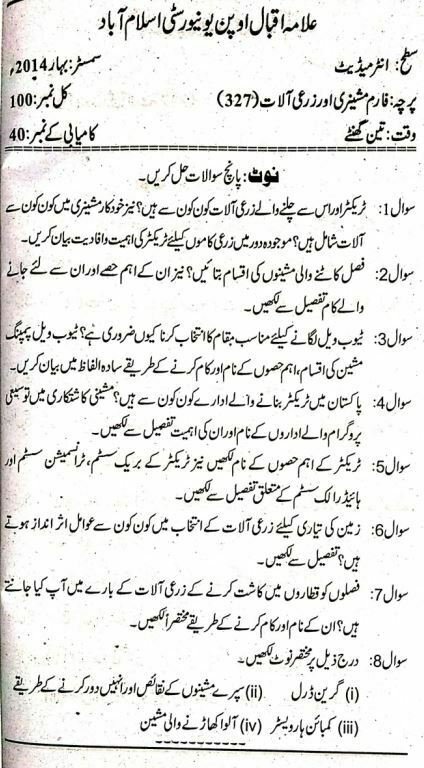 علامہ اقبال اوپن یونیورسٹی اسلام آباد
سطح: انٹر میڈیٹ سمسٹر: بہار 2014ء
پرچہ: فارم مشینری اور زرعی آلات (327) کل نمبر: 100
وقت: تین گھنٹے کامیابی کے نمبر: 40
نوٹ: پانچ سوالات حل کریں۔
سوال 1: ٹریکٹر اور اس سے چلنے والے زرعی آلات کون کون سے ہیں؟ نیز خودکار مشینری میں کون کون سے
آلات شامل ہیں؟ موجودہ دور میں زرعی کاموں کیلئے ٹریکٹر کی اہمیت و افادیت بیان کریں۔
سوال 2: فصل کاٹنے والی مشینوں کی اقسام بتائیں؟ نیز ان کے اہم حصے اور ان سے لئے جانے
والے کام تفصیل سے لکھیں۔
سوال 3: ٹیوب ویل لگانے کیلئے مناسب مقام کا انتخاب کرنا کیوں ضروری ہے؟ ٹیوب ویل پمپنگ
مشین کی اقسام، اہم حصوں کے نام اور کام کرنے کے طریقے سادہ الفاظ میں بیان کریں۔
سوال 4: پاکستان میں ٹریکٹر بنانے والے ادارے کون کون سے ہیں؟ مشینی کاشتکاری میں توسیعی
پروگرام والے اداروں کے نام اور ان کی اہمیت تفصیل سے لکھیں۔
سوال 5: ٹریکٹر کے اہم حصوں کے نام لکھیں نیز ٹریکٹر کے بریک سسٹم، ٹرانسمیشن سسٹم اور
ہائیڈرالک سسٹم کے متعلق تفصیل سے لکھیں۔
سوال 6: زمین کی تیاری کیلئے زرعی آلات کے انتخاب میں کون کون سے عوامل اثر انداز ہوتے
ہیں؟ تفصیل سے لکھیں۔
سوال 7: فصلوں کو قطاروں میں کاشت کرنے کے زرعی آلات کے بارے میں آپ کیا جانتے
ہیں؟ ان کے نام اور کام کرنے کے طریقے مختصراً لکھیں۔
سوال 8: درج ذیل پر مختصر نوٹ لکھیں۔
(i) گرین ڈرل (ii) سپرے مشینوں کے نقائص اور انہیں دور کرنے کے طریقے
(iii) کمبائن ہارویسٹر (iv) آلو اکھاڑنے والی مشین